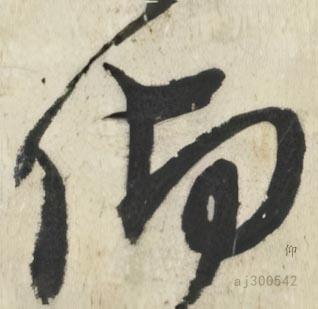 仰
仰
aj300542